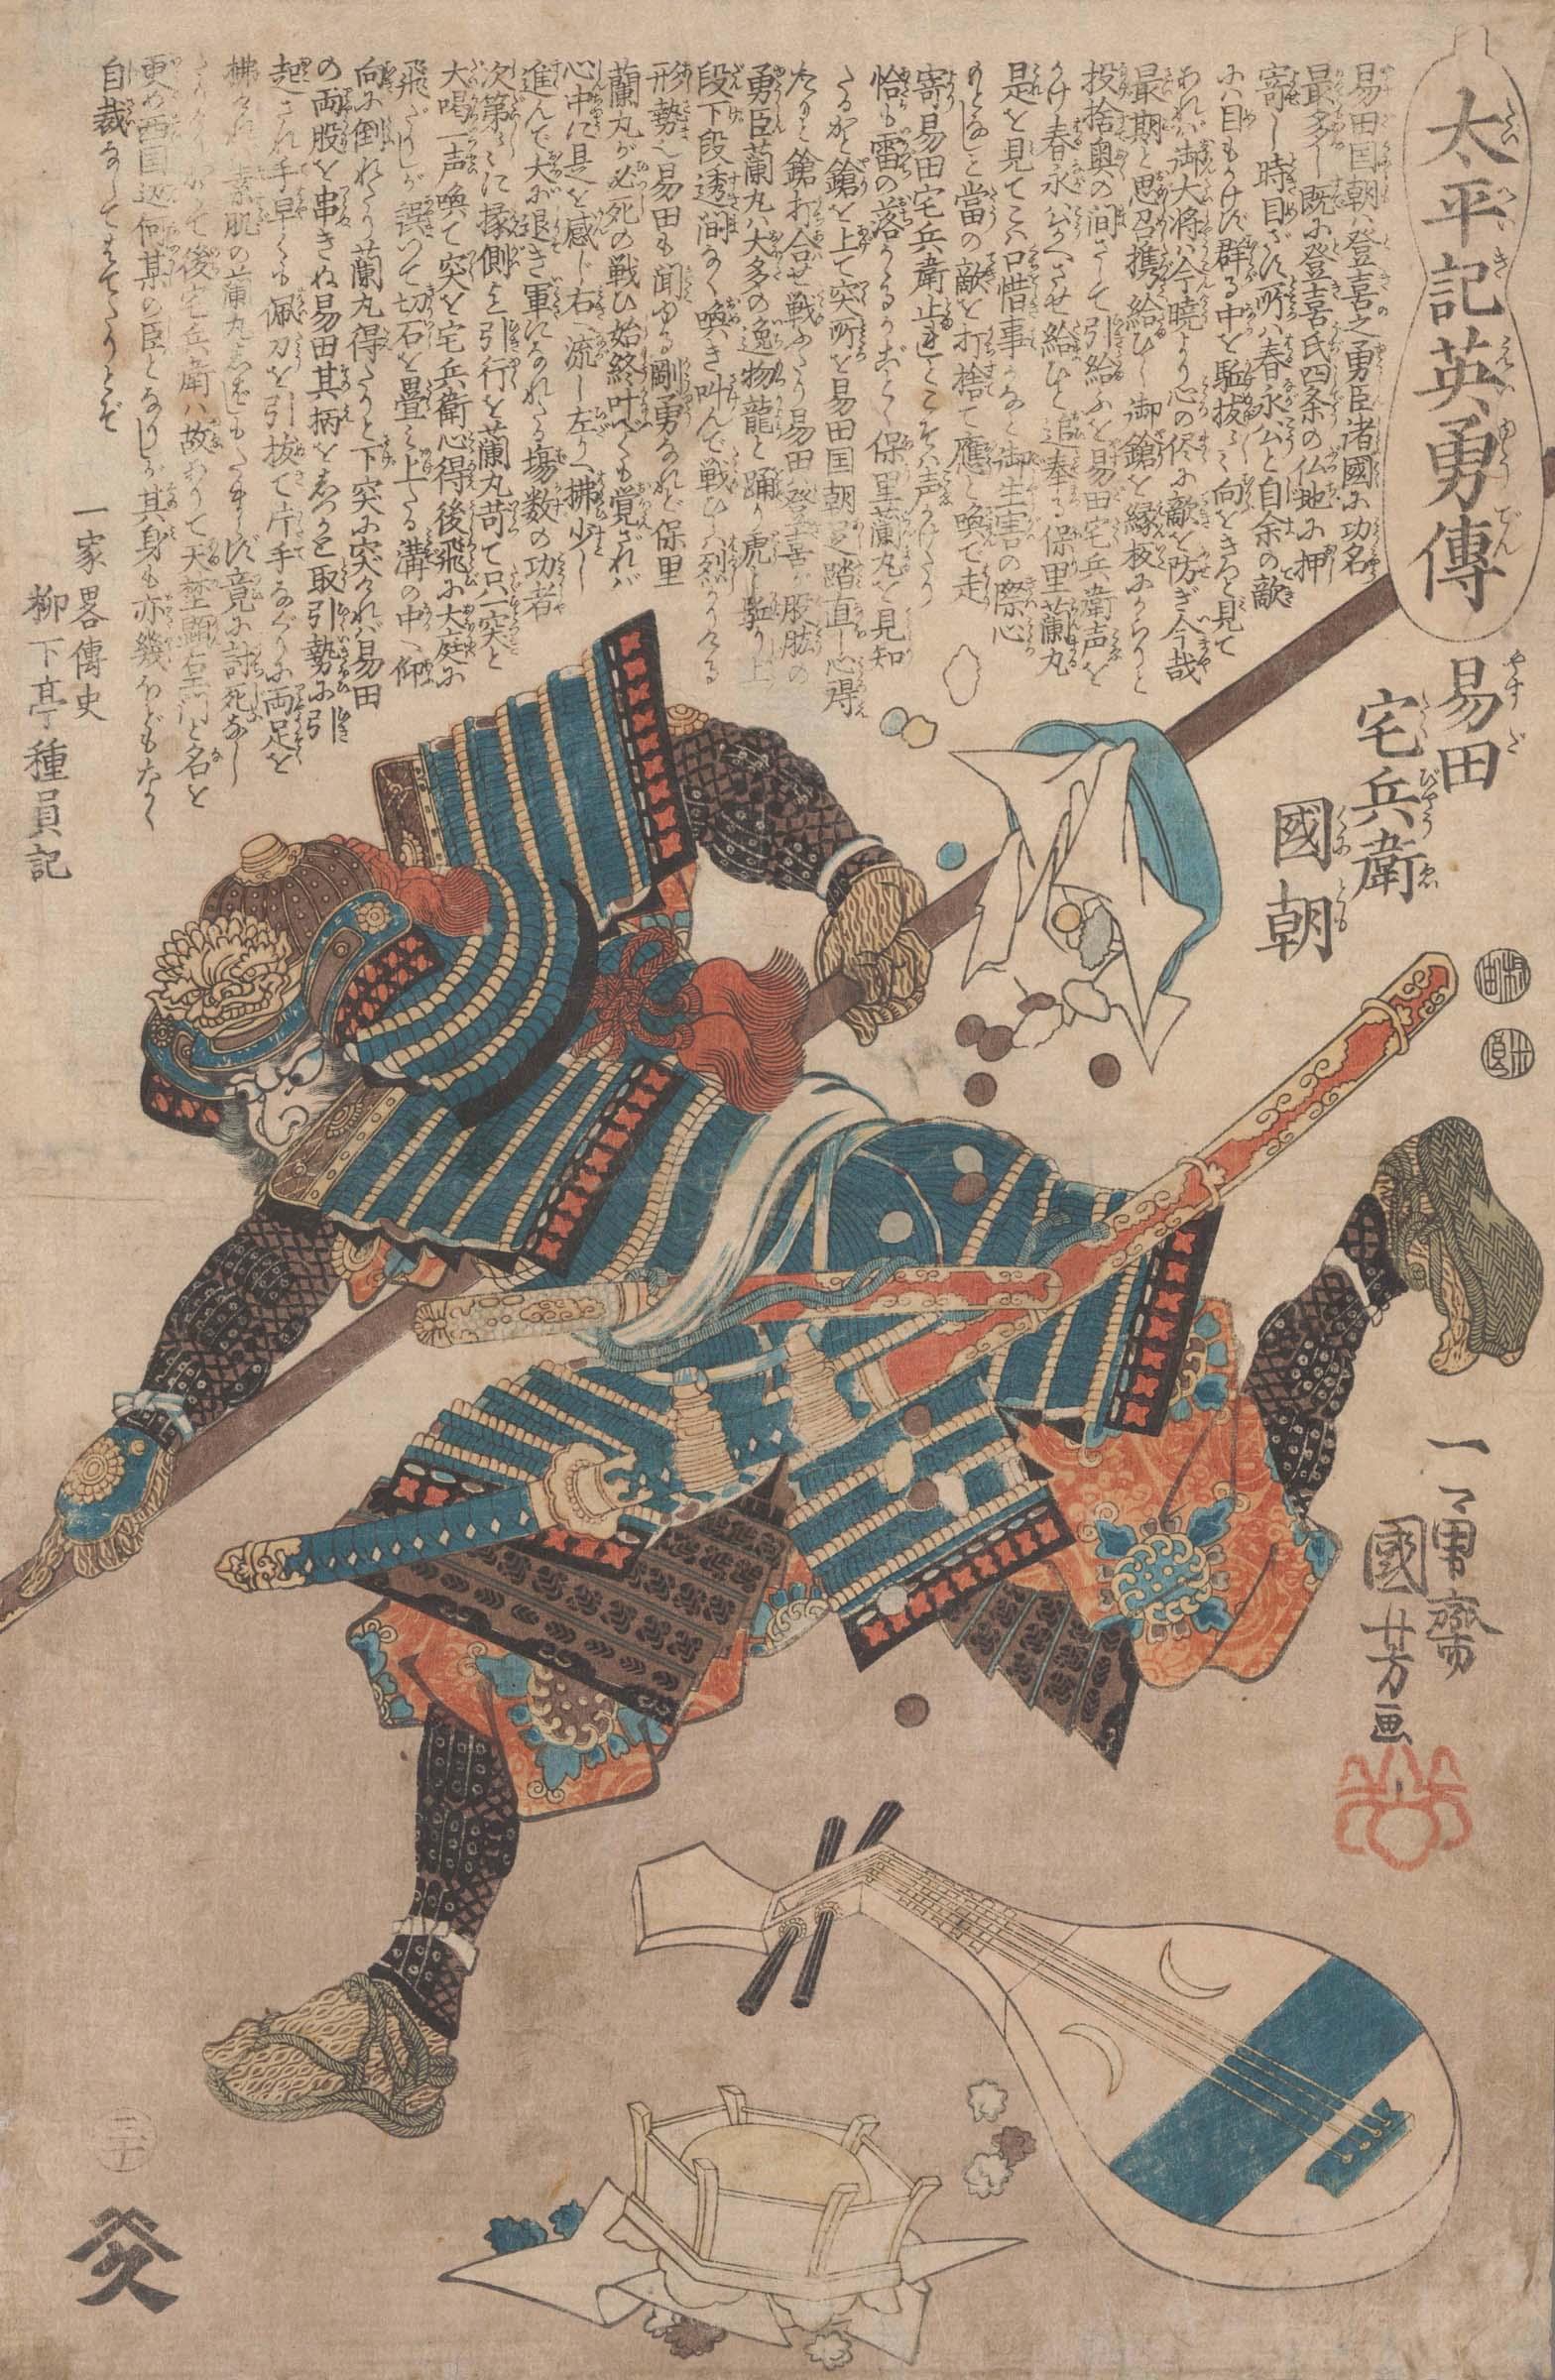 太平記英勇傳
易田
宅兵衛
國朝
易田国朝ハ登喜之勇臣諸國に功名
最多し既に登喜氏四条の仏地に押
寄し時目ざす所ハ春永公と自余の敵
にハ目もかけず群る中を駈抜
あれバ御大将ハ今暁より心の侭に敵を防ぎ今哉
最期と思召携給ひし御鎗を縁板に
投捨奥の間さして引給ふを易田宅兵衛声を
かけ春永公かへさせ給ひと追奉る保里蘭丸
是を見てこハ口惜事かなと御生害の際
當の敵を打捨て應と喚て走
寄易田宅兵衛
恰も雷の落かゝるがごとく保里蘭丸を見知
たるか鎗を上て突所を易田国朝足踏直し心得
たりと鎗打合せ戦ふたり易田ハ登喜が股肱の
勇臣蘭丸ハ大多の逸物龍と踊り虎と駈り上
段下段透間なく喚き叫んで戦ひしハ
形勢也易田も聞ゆる剛勇なれど保里
蘭丸が必死の戦ひ始終叶べくも覚ざれバ
心中に是を感じ右へ流し左りへ拂少し
進んで大に退き軍になれたる場数の功者
次第々々に縁側迄引行を蘭丸苛て只一突と
大喝一声喚て突を宅兵衛心得後飛に大庭に
飛だりしが誤つて切石を畳み上たる溝の中へ仰
向に倒れたり蘭丸得たりと下突に突くれバ易田
の両股を串きぬ易田其柄をしつかと取引勢に引
起され手早くも佩刀を引抜て片手なぐりに両足を
素肌の蘭丸 竟に討死なし
後宅兵衛ハ故ありて天 と名を
更め西国辺何某の臣となりしが其身も亦幾ほどもなく
自裁なしてはてたりとぞ
一家畧傳史
柳下亭種員記
一勇齋
國芳画
二十